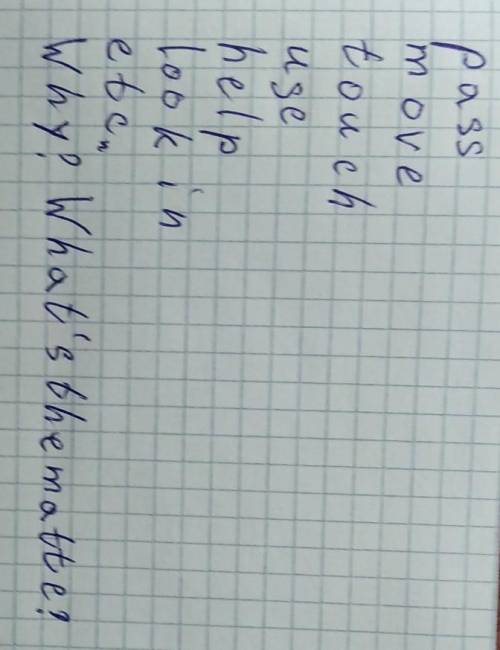 pass
move
touch
use
help
look in
etc„
Why? What's the matte?